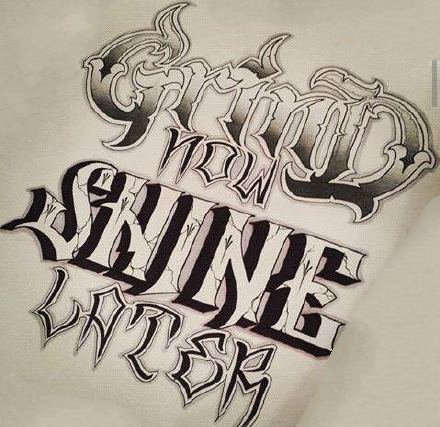 GrinD
NOW
SHINE
LATER